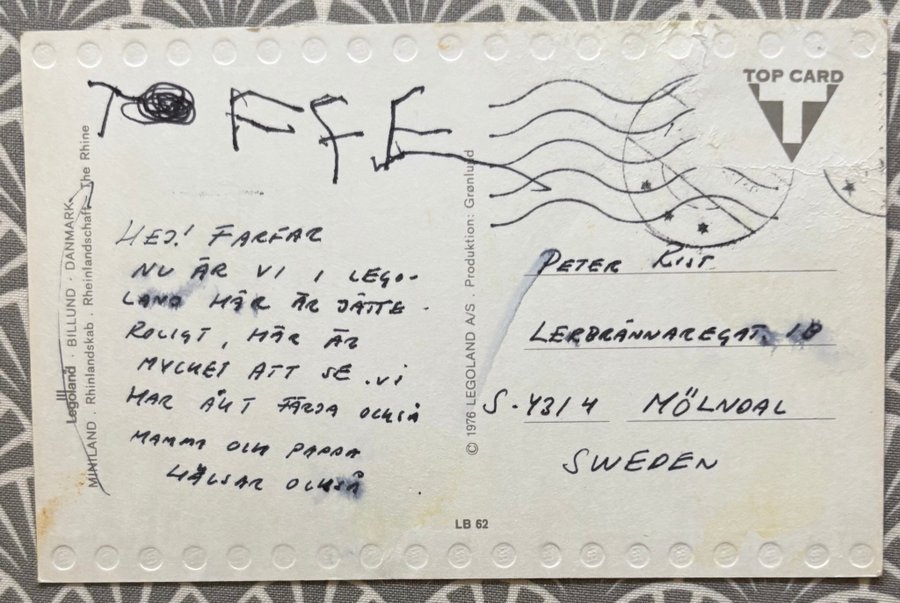 TOFFE
HEJ! FARFAR
NU ÄR VI I LEGO-
LAND HÄR ÄR JÄTTE-
ROLIGT, HÄR ÄR
MYCKET ATT SE. VI
HAR ÅKT FÄRJA OCKSÅ
MAMMA OCH PAPPA
HÄLSAR OCKSÅ
Legoland · BILLUND · DANMARK
MINILAND . Rhinlandskab . Rheinlandschaft. The Rhine
© 1976 LEGOLAND A/S . Produktion: Grønlund
TOP CARD
T
PETER KIST
LERBRÄNNAREGAT. 1B
S-4314 MÖLNDAL
SWEDEN
LB 62